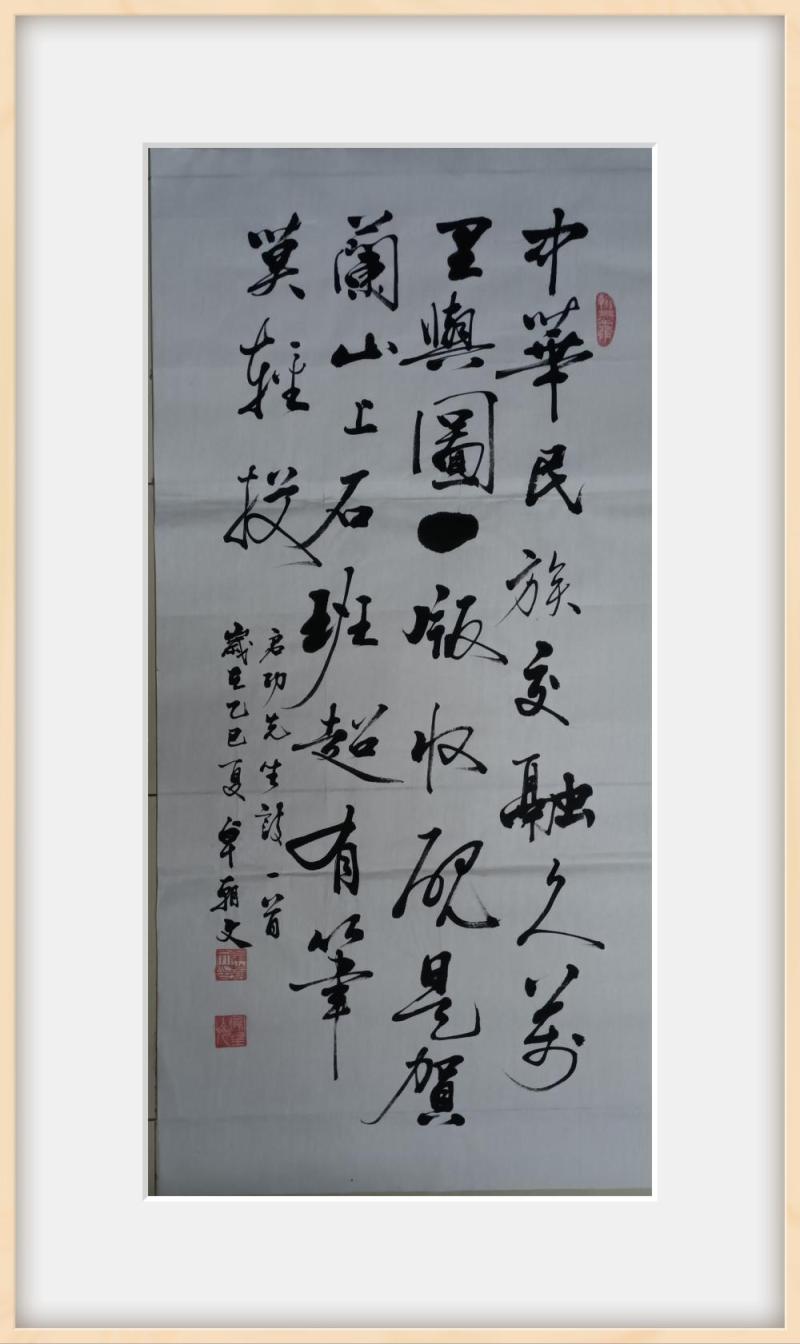 中華民族交融久萬
里輿圖一版收硯是賀
蘭山上石班超有筆
莫輕投
启功先生詩一首
歲在乙巳夏 卓朝文